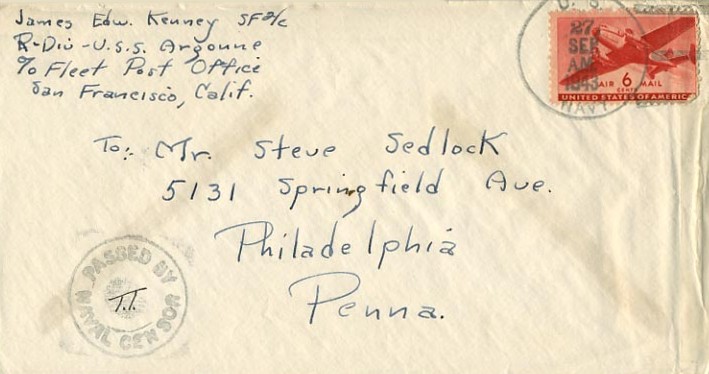 James Edw. Kenney SF2/c
R-Div - U.S.S. Argonne
℅ Fleet Post Office
San Francisco, Calif.
U. S.
27
SEP
AM
1943
NAVY
AIR 6 MAIL
CENTS
UNITED STATES OF AMERICA
To: Mr. Steve Sedlock
5131 Springfield Ave.
Philadelphia
Penna.
PASSED BY
T.T.
NAVAL CENSOR